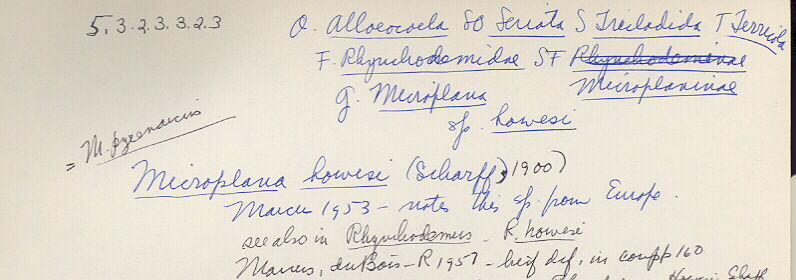 5.3.2.3.3.2.3
O. Alloeocoela SO Seriata S Tricladida T Terricola
F. Rhynchodemidae SF Rhynchodeminae
Microplaninae
G. Microplana
sp. howesi
= M. pyrenaicus
Microplana howesi (Scharff, 1900)
Marcus 1953 - notes this sp. from Europe.
see also in Rhynchodemus - R. howesi
Marcus, du Bois-R 1957 - brief def. in comp p 160